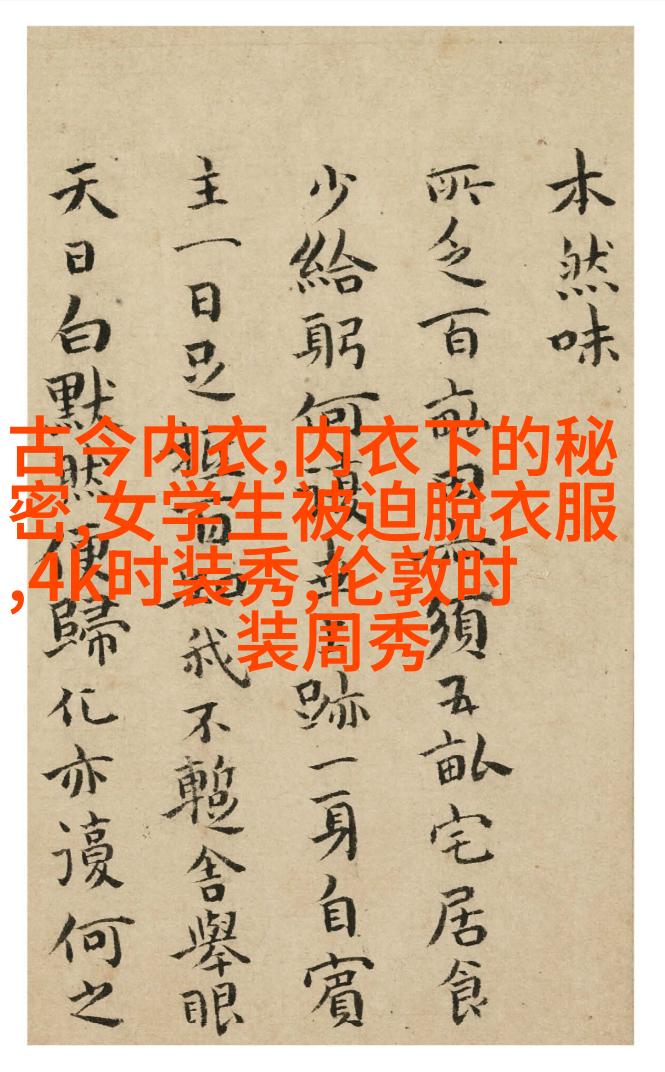 本然味
所乏百須五畝宅居食
少給躬何跡一身自賓
主一日足我不蹔舍舉眼
天日白默然便歸化亦謾何之
古今内衣,内衣下的秘
密,女学生被迫脫衣服
,4k时装秀,伦敦时
装周秀